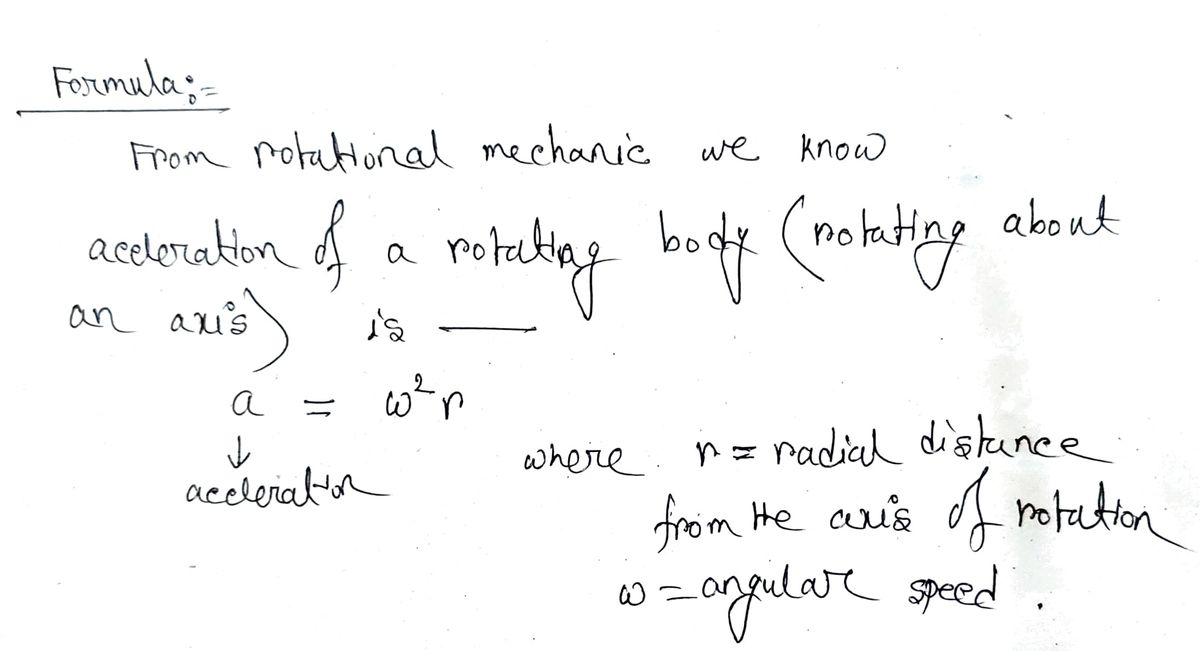 Formula:=
From rotational mechanic we know
acceleration of a rotating body (rotating about
an axis) is —
a = ω²r
↓
acceleration
where r = radial distance
from the axis of rotation
ω = angular speed.